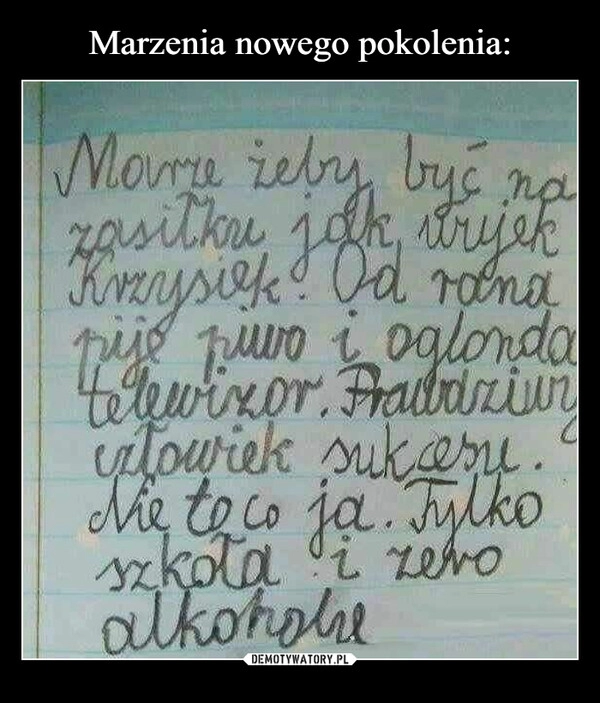 Marzenia nowego pokolenia:
Marze żeby być na
zasiłku jak wujek
Krzysiek. Od rana
pije piwo i oglonda
telewizor. Prawdziwy
człowiek sukcesu.
Nie to co ja. Tylko
szkoła i zero
alkoholu
DEMOTYWATORY.PL